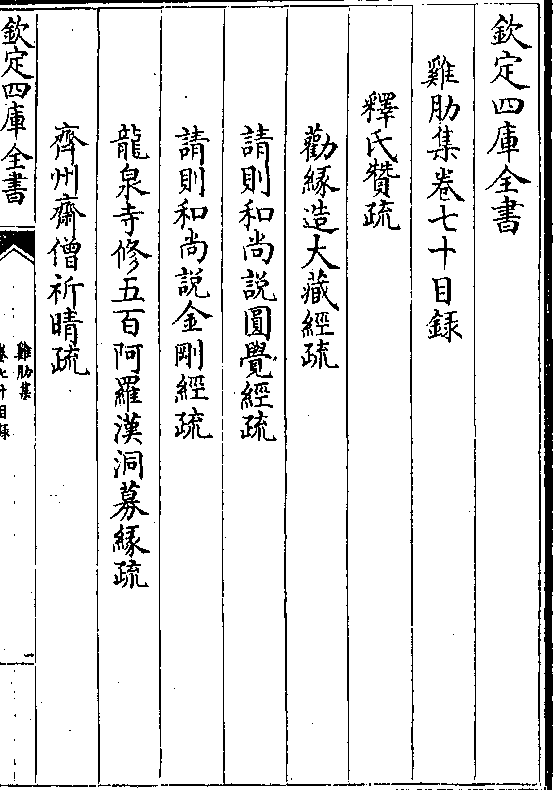 欽定四庫全書
雞肋集卷七十目録
釋氏贊疏
勸緣造大藏經疏
請則和尚說圓覺經疏
請則和尚說金剛經疏
龍泉寺修五百阿羅漢洞募緣疏
齊州齋僧祈晴疏
欽定四庫全書
雞肋集
卷七十目録
一